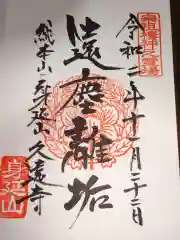 令和二年十一月二十二日
遠塵離垢
総本山身延山久遠寺
身延山